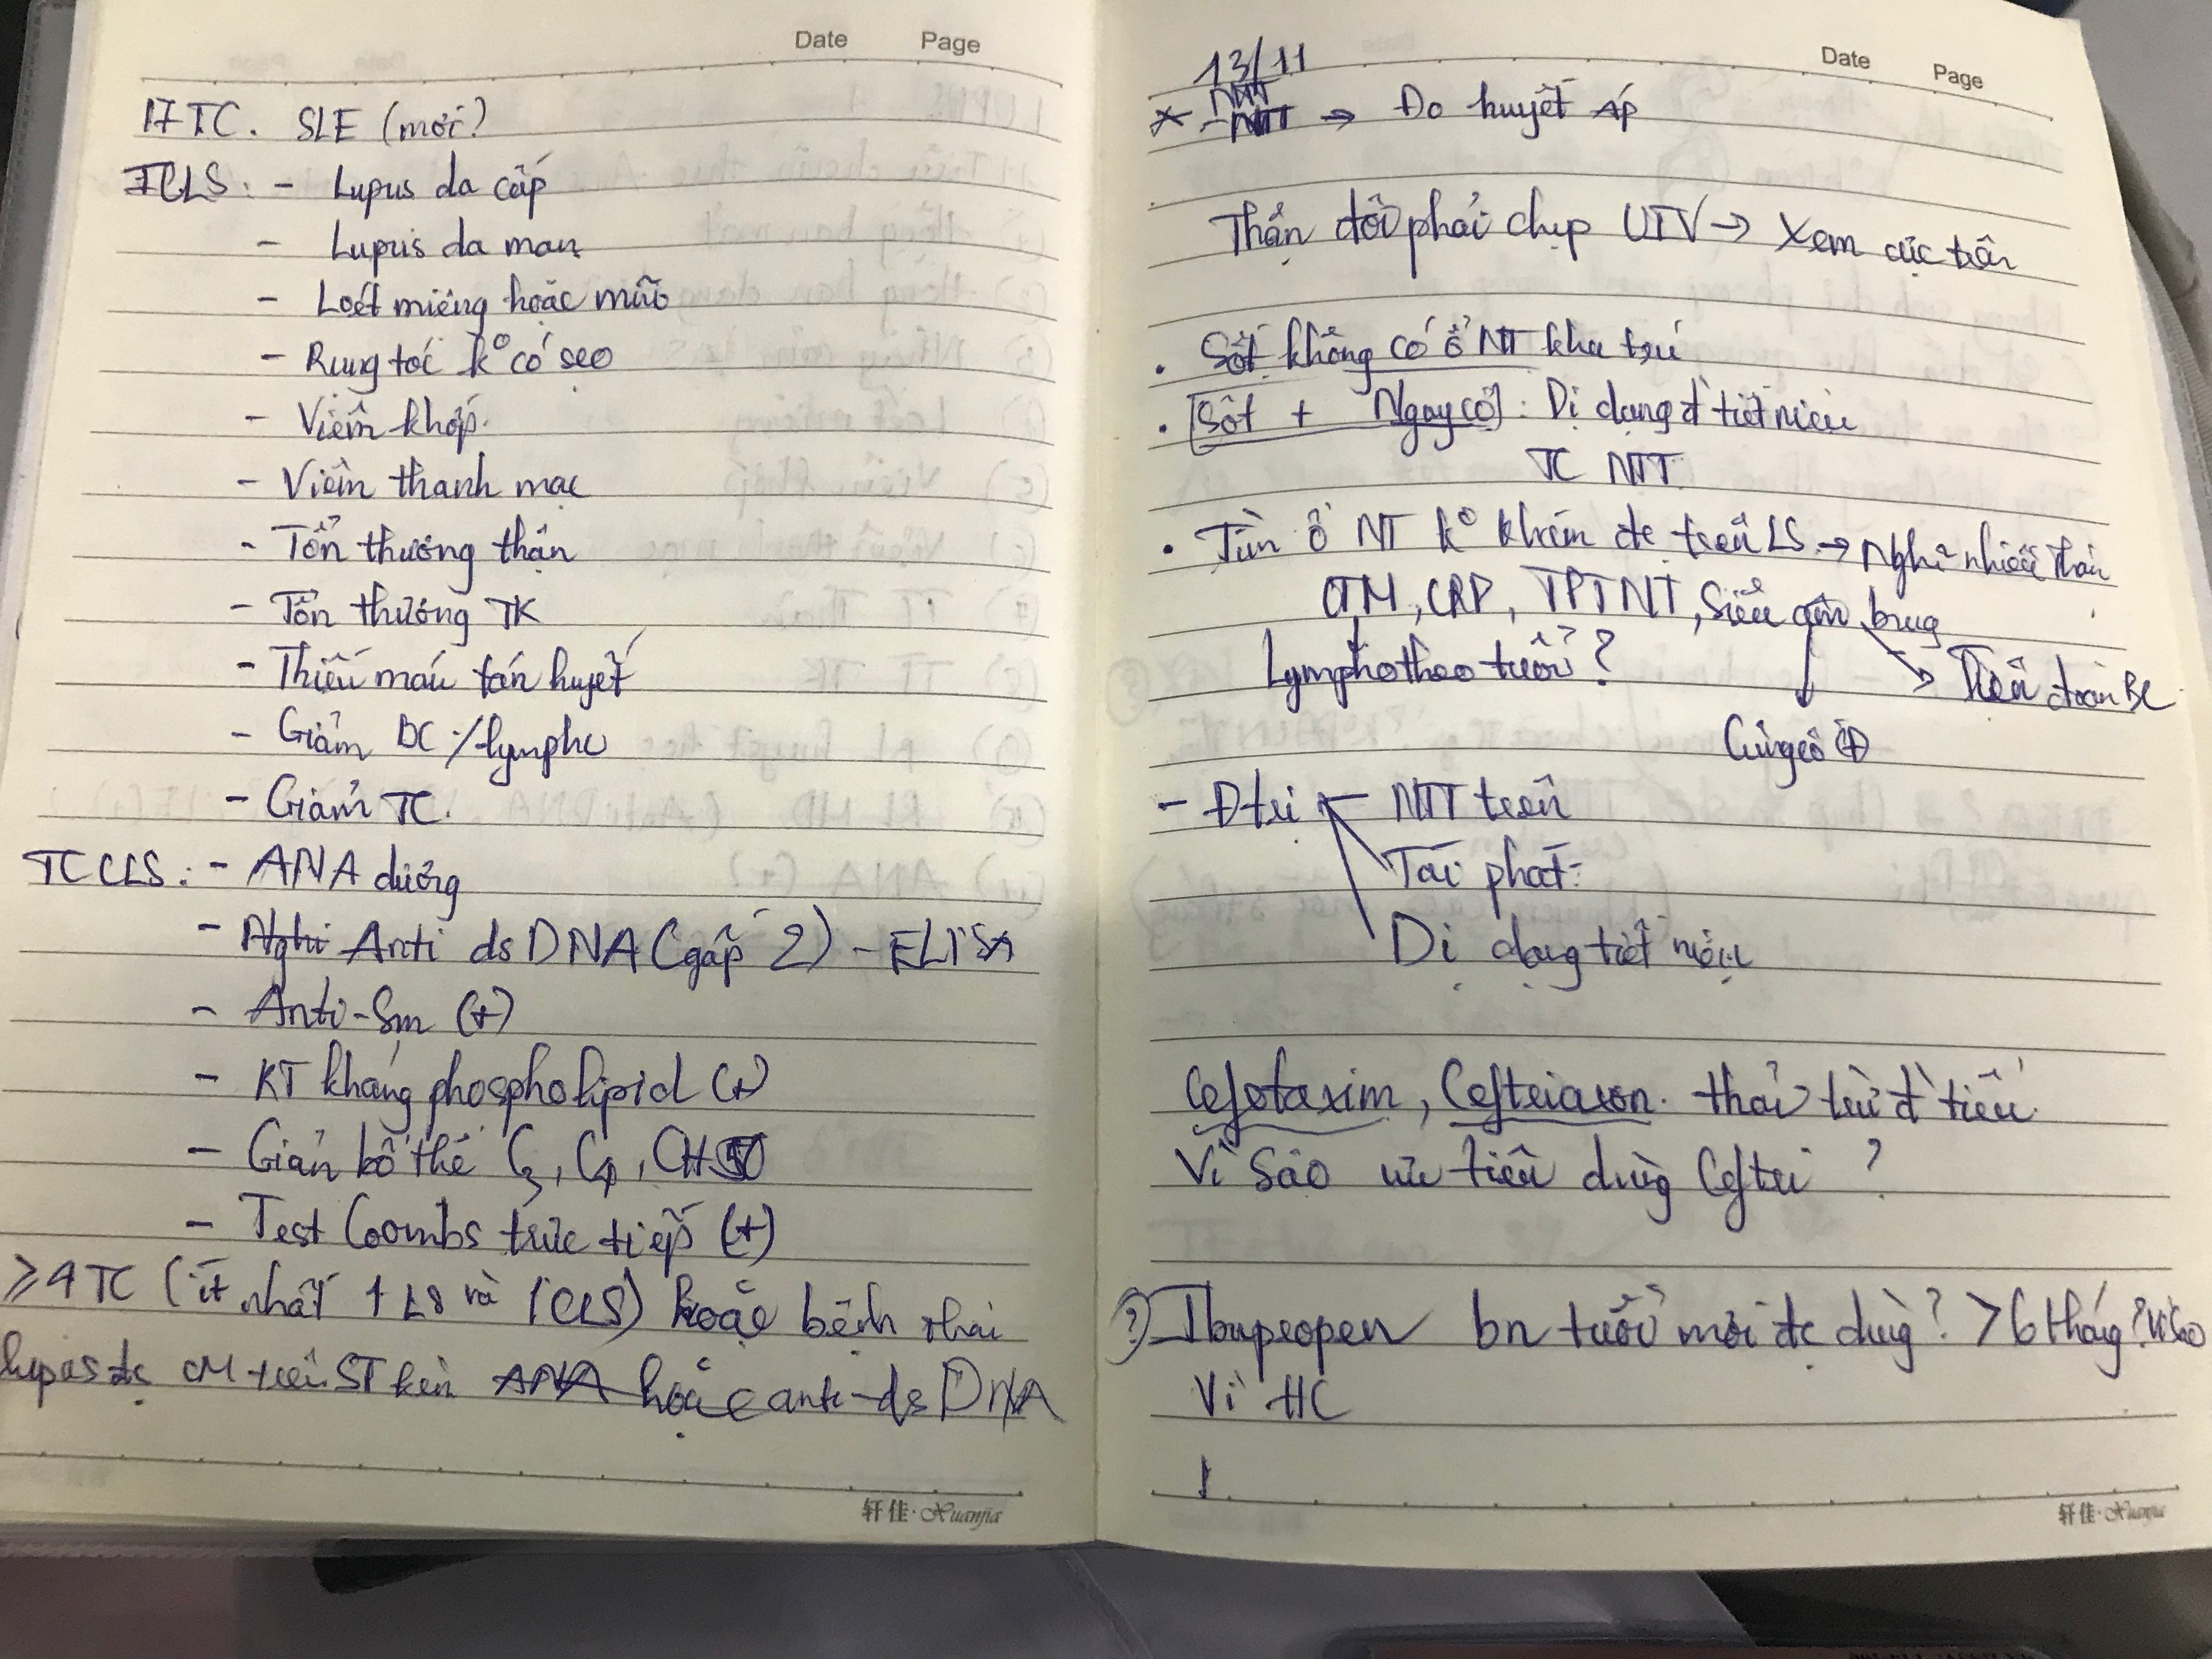 Date Page
17 TC. SLE (mới)
TCLS: - Lupus da cấp
- Lupus da mạn
- Loét miệng hoặc mũi
- Rụng tóc k° có sẹo
- Viêm khớp.
- Viêm thanh mạc
- Tổn thương thận
- Tổn thương TK
- Thiếu máu tán huyết
- Giảm BC /lympho
- Giảm TC.
TCCLS: - ANA dương
- Anti ds DNA (gấp 2) - ELISA
- Anti-Sm (+)
- KT kháng phospholipid (+)
- Giảm bổ thể C3, C4, CH50
- Test Coombs trực tiếp (+)
≥4 TC (ít nhất 1 LS và 1 CLS) hoặc bệnh thận
lupus đc CM trên ST kèm ANA hoặc anti-ds DNA
轩佳·Xuanjia
Date Page
13/11
* - NTT → Đo huyết áp
Thận đôi phải chụp UIV → Xem cực trên
. Sốt không có ổ NT khu trú
. [Sốt + Nguy cơ]: Dị dạng đ tiết niệu
TC NTT
• Tìm ổ NT k° khám đc trên LS → Nghĩ nhiều
CTM, CRP, TPTNT, Siêu âm bụng
Lympho theo tuổi? Tiên đoán BC
Củng cố (+)
- Đtrị NTT trên
Tái phát:
Dị dạng tiết niệu
Cefotaxim, Ceftriaxon. thải trừ đ tiểu
Vì sao ưu tiên dùng Ceftri ?
?) Ibuprofen bn tuổi mới đc dùng? >6 tháng? Vì sao
Vì HC
轩佳·Xuanjia